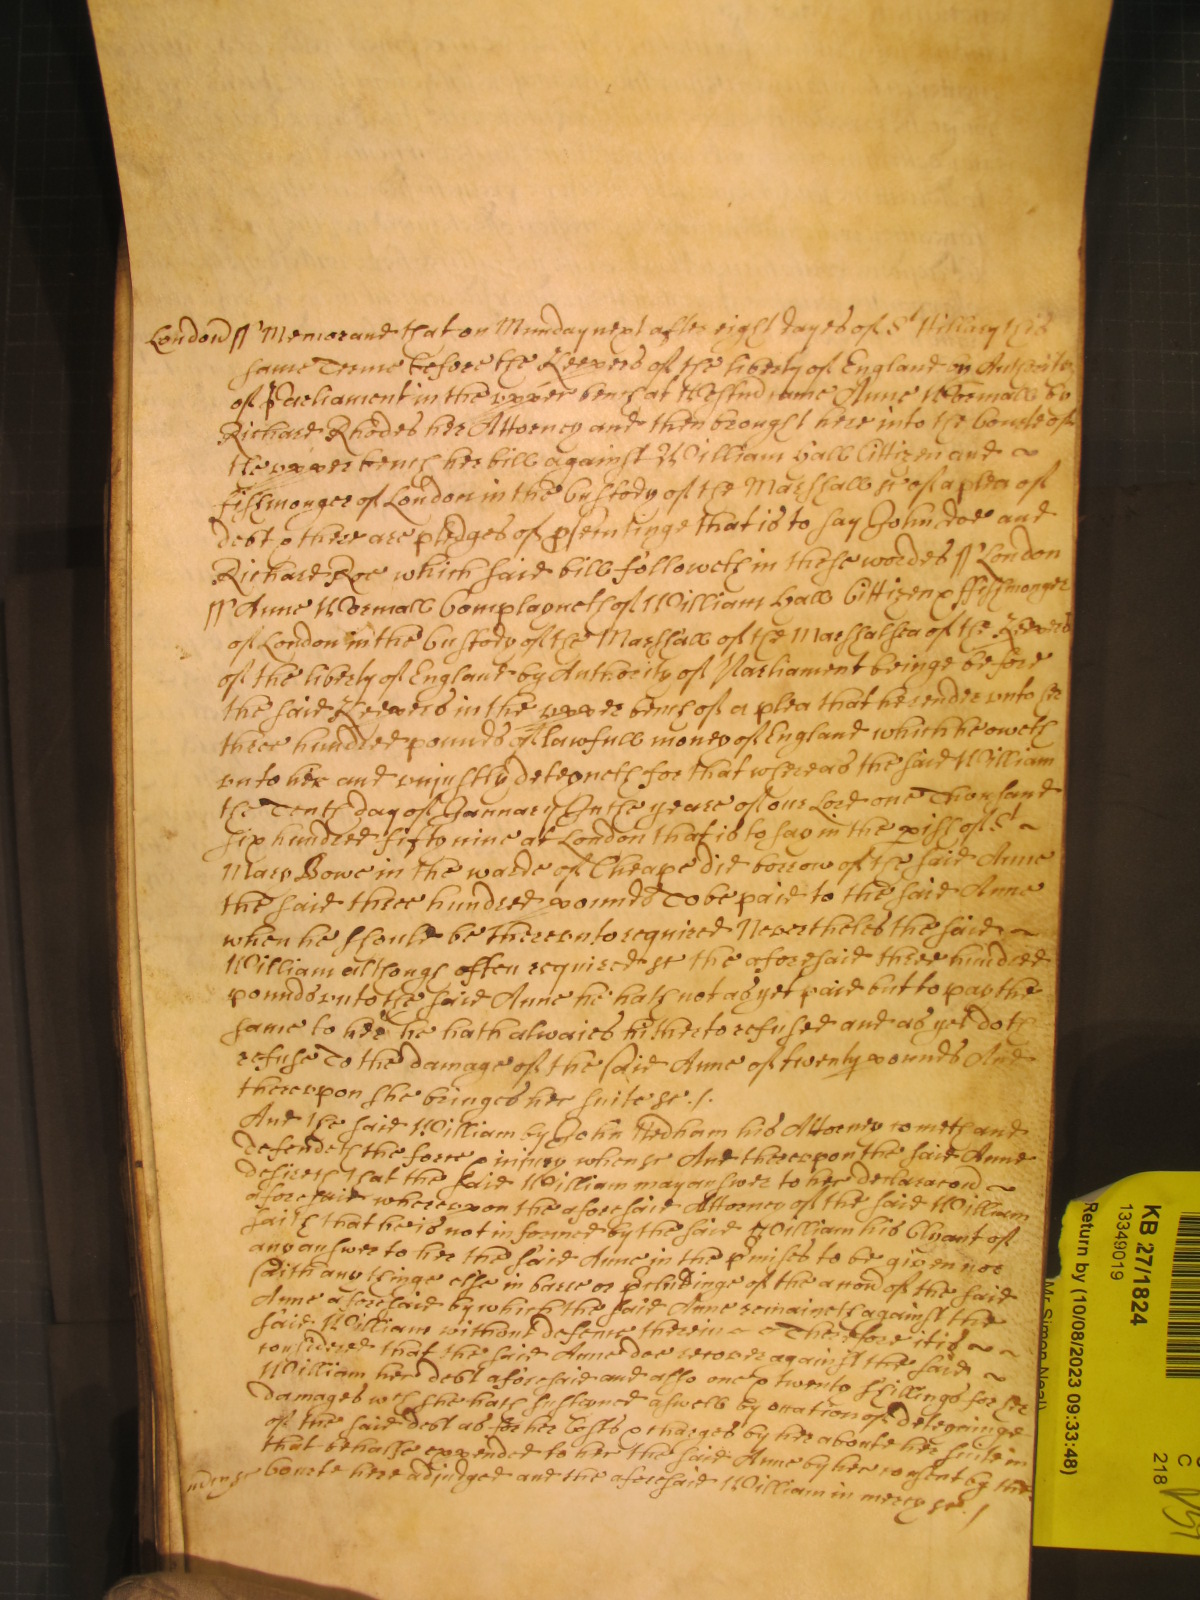 London // Memorand that on Munday next after eight dayes of St Hillary this
same Terme before the Keepers of the liberty of England by Authoritie
of Parliament in the upper bench at Westm came Anne Wormall by
Richard Rhodes her Attorney and then brought here into the Courte of
the upper bench her bill against William Hall Cittizen and ~
fishmonger of London in the Custody of the Marshall &c of a plea of
debt & there are pledges of psecutinge that is to say John Doe and
Richard Roe which said bill followeth in these wordes // London
// Anne Wormall Complayneth of William Hall Cittizen & ffishmonger
of London in the Custody of the Marshall of the Marshalsea of the Keepers
of the liberty of England by Authority of Parliament beinge before
the said Keepers in the upper bench of a plea that he render unto her
three hundred pounds of lawfull money of England which he oweth
unto her and unjustly deteyneth for that whereas the said William
the Tenth day of January In the yeare of our Lord one Thousand
six hundred fifty nine at London that is to say in the pish of St ~
Mary Bowe in the warde of Cheape did borrow of the said Anne
the said three hundred pounds To be paid to the said Anne
when he should be thereunto required Nevertheles the said ~
William although often required &c the aforesaid three hundred
pounds unto the said Anne he hath not as yet paid but to pay the
same to her he hath alwaies hitherto refused and as yet doth
refuse To the damage of the said Anne of twenty pounds And
thereupon she bringes her suite &c ./.
And the said William by John Hedham his Attorney cometh and
defendeth the force & injury when &c And thereupon the said Anne
desireth that the said William may answer to her declaracon ~
aforesaid whereupon the aforesaid Attorney of the said William
saith that he is not informed by the said William his Clyant of
any answer to her the said Anne in the pmises to be given nor
saith any thinge else in barre or pcludinge of the accon of the said
Anne aforesaid by which the said Anne remaineth against the
said William without defence therein ~ ~ Therefore it is ~ ~
considered that the said Anne doe recover against the said ~
William her debt aforesaid and also one & twenty shillings for her
damages wch she hath susteyned aswell by occation of deteyninge
of the said debt as for her Costs & charges by her aboute her suite in
that behalfe expended to her the said Anne by her consent by the
mercy &c Courte here adjudged and the aforesaid William in mercy &c ./
KB 27/1824
13349019
Return by (10/08/2023 09:33:48)
Mr Simon Neal
C
218